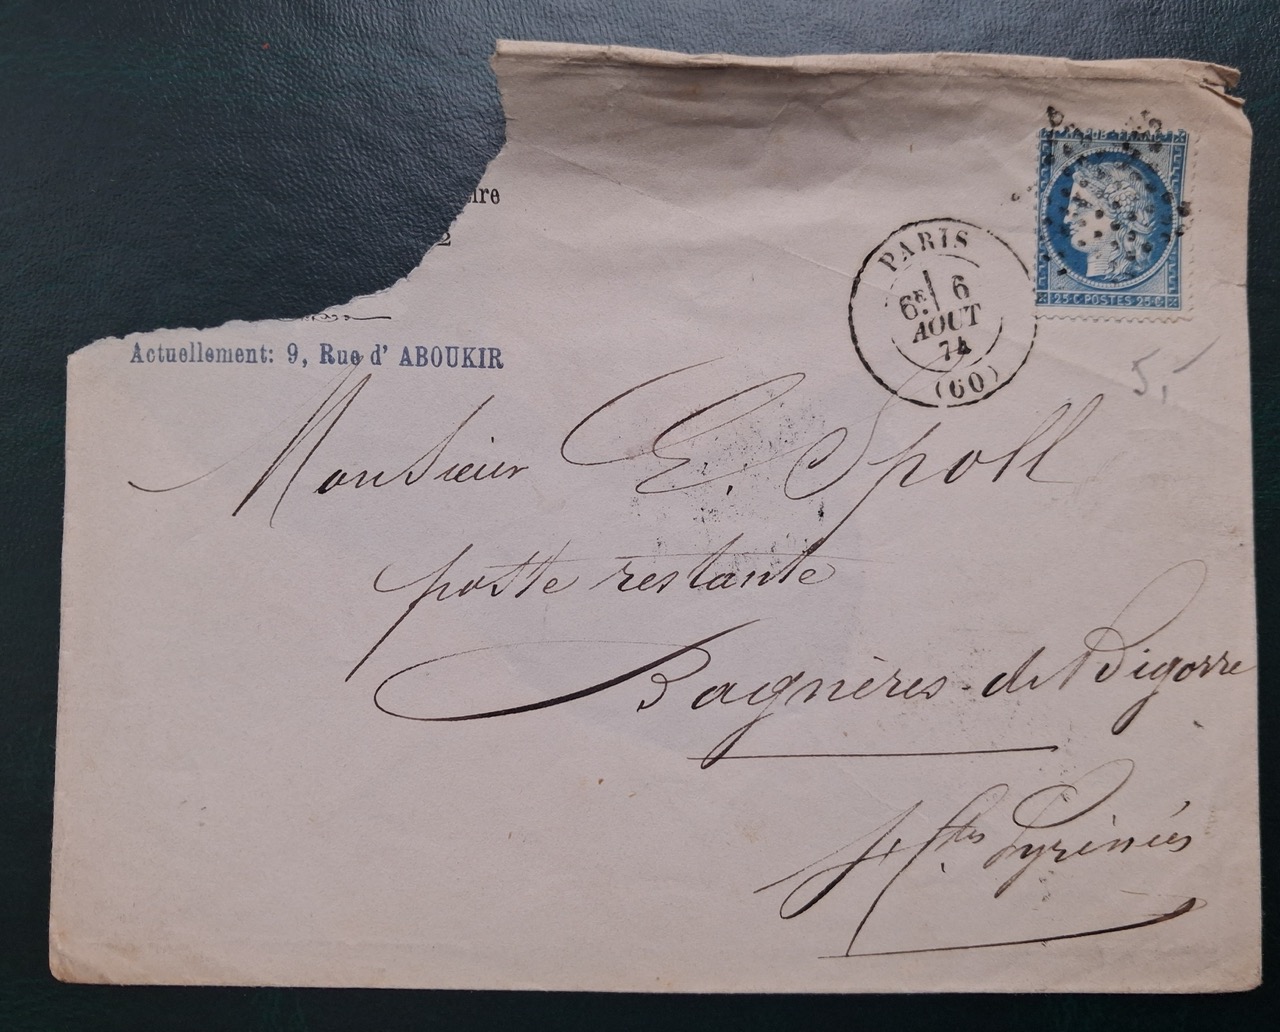 ire
2
Actuellement: 9, Rue d' ABOUKIR
25·C·POSTES 25·C
PARIS
6E 6
AOUT
74
(60)
5,-
Monsieur E. Spoll
poste restante
Bagnères-de Bigorre
Htes Pyrénées